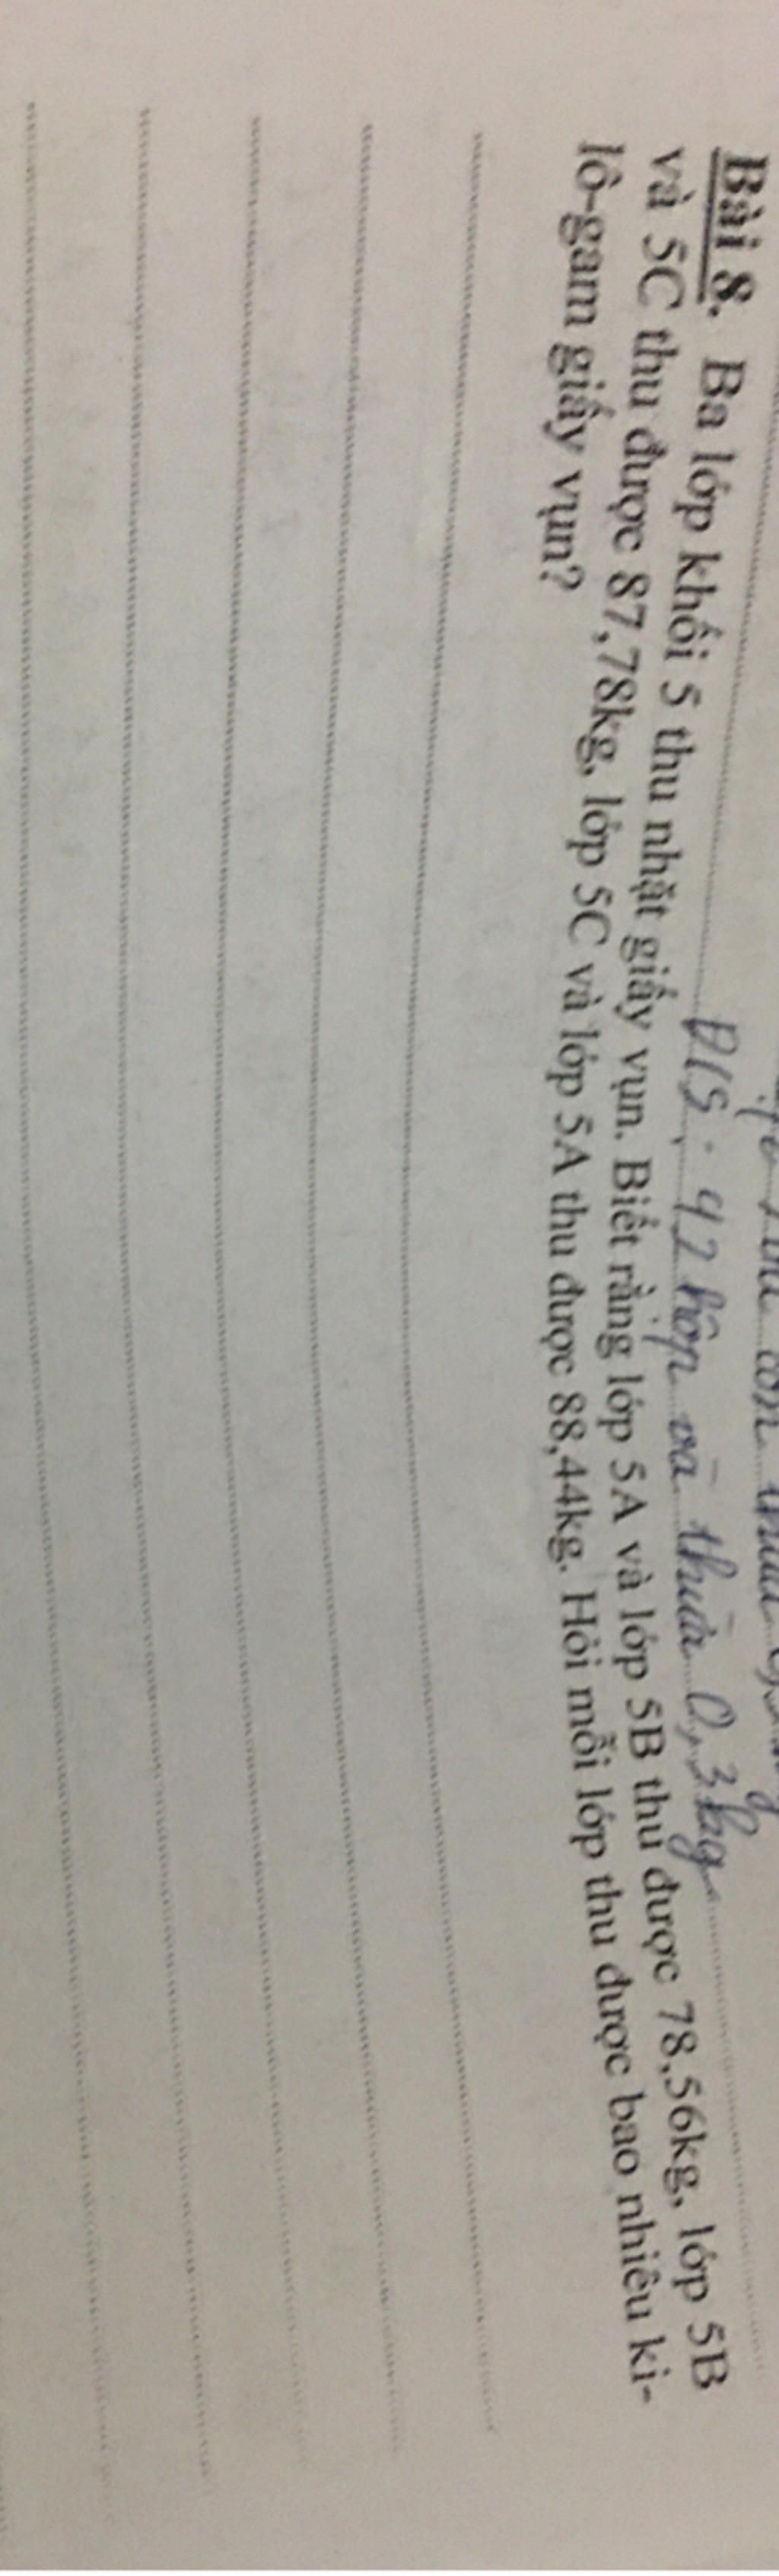 ĐS: 42 hộp và thừa 0,3kg.
Bài 8. Ba lớp khối 5 thu nhặt giấy vụn. Biết rằng lớp 5A và lớp 5B thu được 78,56kg, lớp 5B
và 5C thu được 87,78kg, lớp 5C và lớp 5A thu được 88,44kg. Hỏi mỗi lớp thu được bao nhiêu ki-
lô-gam giấy vụn?